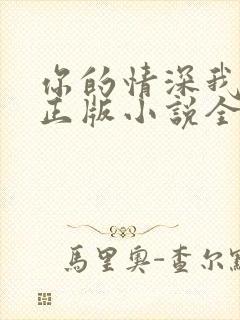 你的情深我
正版小說全
馬里奧-查尔